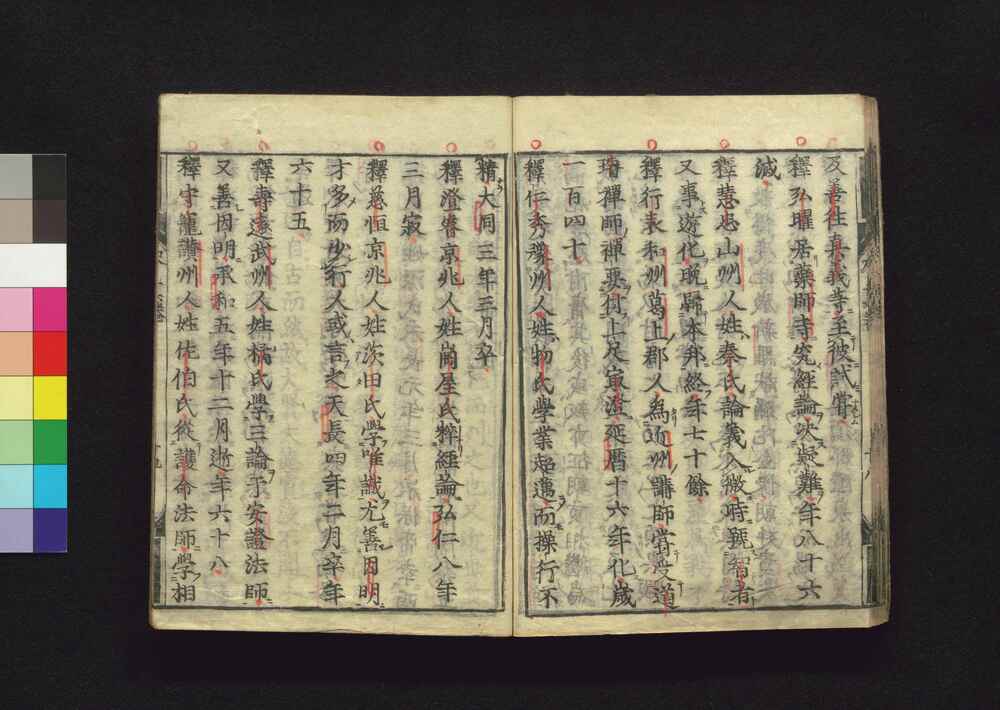 及善往真義寺至彼試嘗
釋弘曜居藥師寺究經論決疑難年八十六
滅
釋慧忠山州人姓秦氏論義入微時號智者
又事遊化晩歸本弁終年七十餘
釋行表和州葛上郡人為近州講師嘗受道
璿禪師禪要付上足寂澄延曆十六年化歲
一百四十
釋仁秀州人姓物氏學業超邁而操行不
精大同三年三月卒
釋澄睿京兆人姓崗屋氏粹經論弘仁八年
三月寂
釋慈恒京兆人姓次田氏學唯識尤善因明
才多而少行人或言之天長四年二月卒年
六十五
釋壽遠武州人姓橘氏學三論于安證法師
又善因明承和五年十二月逝年六十八
釋守寵讚州人姓佐伯氏從護命法師學相